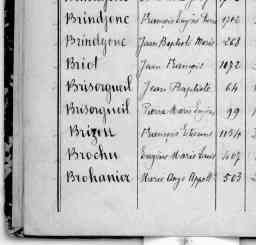 Brindjonc François Eugène
Brindjonc Jean Baptiste Marie 268
Briot Jean François 1072
Brisorgueil Jean Baptiste 64
Brisorgueil Pierre Marie 99
Brizeu François Etienne 1134
Brochu Eugène Marie Louis 407
Brohanier Marie Ange 503